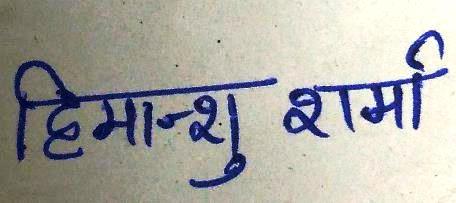 हिमान्शु शर्मा